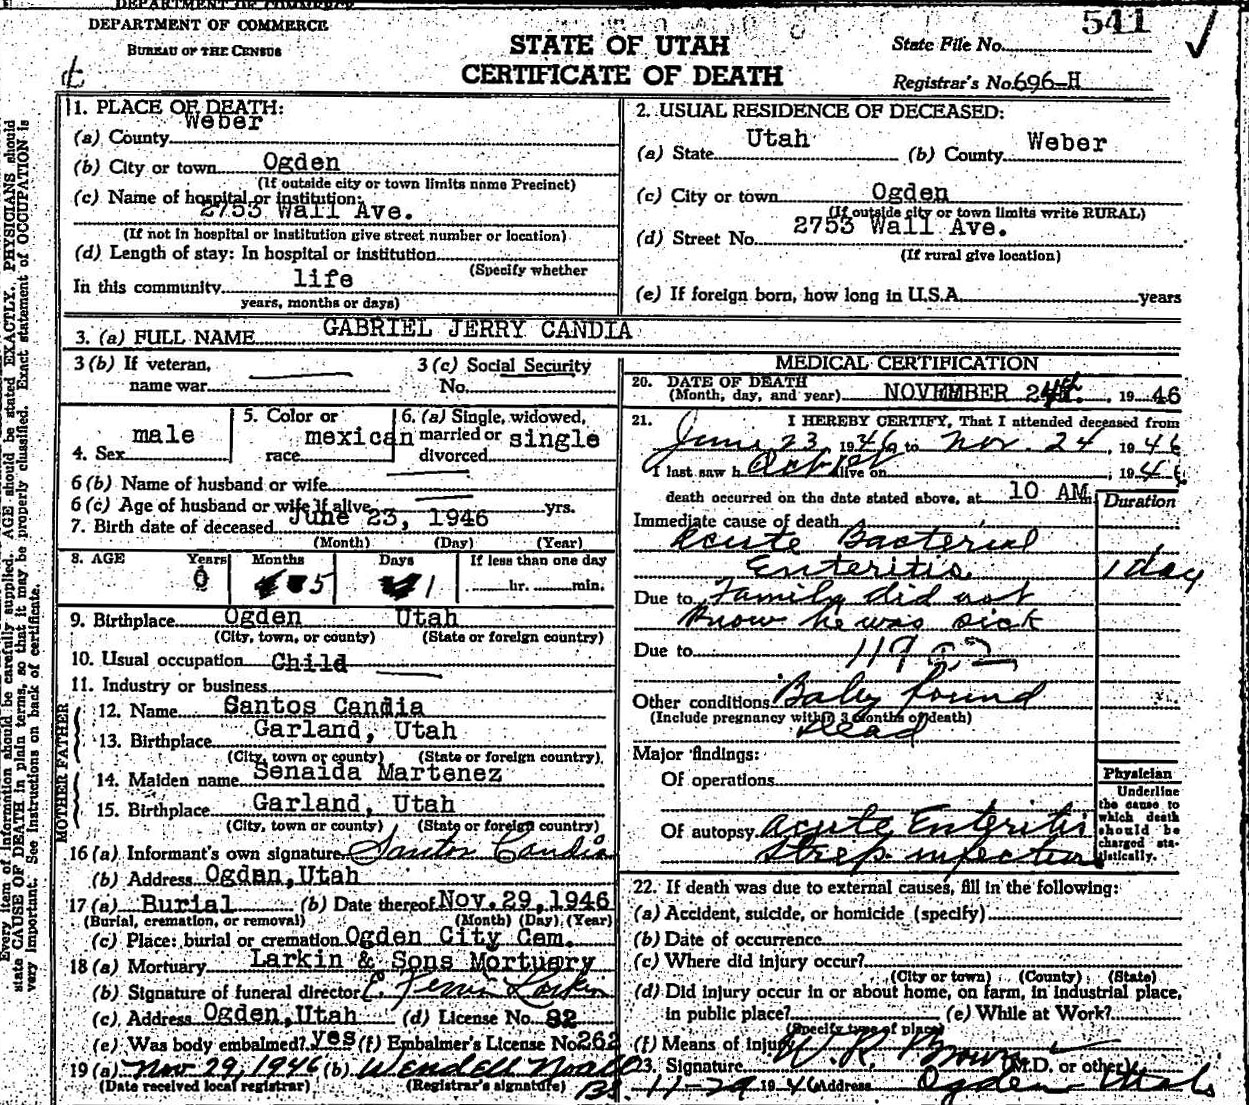 DEPARTMENT OF COMMERCE
DEPARTMENT OF COMMERCE
BUREAU OF THE CENSUS
STATE OF UTAH
CERTIFICATE OF DEATH
541
State File No.
Registrar's No. 696-H
Every item of information should be carefully supplied. AGE should be stated EXACTLY. PHYSICIANS should
state CAUSE OF DEATH in plain terms, so that it may be properly classified. Exact statement of OCCUPATION is
very important. See instructions on back of certificate.
1. PLACE OF DEATH:
(a) County Weber
(b) City or town Ogden
(If outside city or town limits name Precinct)
(c) Name of hospital or institution:
2753 Wall Ave.
(If not in hospital or institution give street number or location)
(d) Length of stay: In hospital or institution
(Specify whether
In this community life
years, months or days)
2. USUAL RESIDENCE OF DECEASED:
(a) State Utah (b) County Weber
(c) City or town Ogden
(If outside city or town limits write RURAL)
(d) Street No. 2753 Wall Ave.
(If rural give location)
(e) If foreign born, how long in U.S.A. years
3. (a) FULL NAME GABRIEL JERRY CANDIA
3 (b) If veteran,
name war
3 (c) Social Security
No.
4. Sex male
5. Color or
race mexican
6. (a) Single, widowed,
married or
divorced single
6 (b) Name of husband or wife
6 (c) Age of husband or wife if alive yrs.
7. Birth date of deceased June 23, 1946
(Month) (Day) (Year)
8. AGE Years Months Days If less than one day
0 5 1 hr. min.
9. Birthplace Ogden Utah
(City, town, or county) (State or foreign country)
10. Usual occupation Child
11. Industry or business
FATHER
12. Name Santos Candia
13. Birthplace Garland, Utah
(City, town or county) (State or foreign country)
MOTHER
14. Maiden name Senaida Martenez
15. Birthplace Garland, Utah
(City, town, or county) (State or foreign country)
16 (a) Informant's own signature Santos Candia
(b) Address Ogden, Utah
17 (a) Burial (b) Date thereof Nov. 29, 1946
(Burial, cremation, or removal) (Month) (Day) (Year)
(c) Place: burial or cremation Ogden City Cem.
18 (a) Mortuary Larkin & Sons Mortuary
(b) Signature of funeral director Larkin
(c) Address Ogden, Utah (d) License No. 82
(e) Was body embalmed? yes (f) Embalmer's License No. 262
19 (a) Nov 29, 1946 (b) Wendell Noall
(Date received local registrar) (Registrar's signature)
MEDICAL CERTIFICATION
20. DATE OF DEATH
(Month, day, and year) NOVEMBER 24th, 1946
21. I HEREBY CERTIFY, That I attended deceased from
June 23, 1946 to Nov. 24, 1946
I last saw h alive on 1946
death occurred on the date stated above, at 10 AM
Duration
Immediate cause of death
Acute Bacterial
Enteritis 1 day
Due to Family did not
know he was sick
Due to 119
Other conditions Baby found
(Include pregnancy within 3 months of death)
dead
Major findings:
Of operations
Of autopsy Acute Enteritis
Strep infection
Physician
Underline
the cause to
which death
should be
charged sta-
tistically.
22. If death was due to external causes, fill in the following:
(a) Accident, suicide, or homicide (specify)
(b) Date of occurrence
(c) Where did injury occur?
(City or town) (County) (State)
(d) Did injury occur in or about home, on farm, in industrial place,
in public place? (e) While at Work?
(Specify type of place)
(f) Means of injury
23. Signature W. R. Brown (M.D. or other)
11-29 1946 Address Ogden Utah